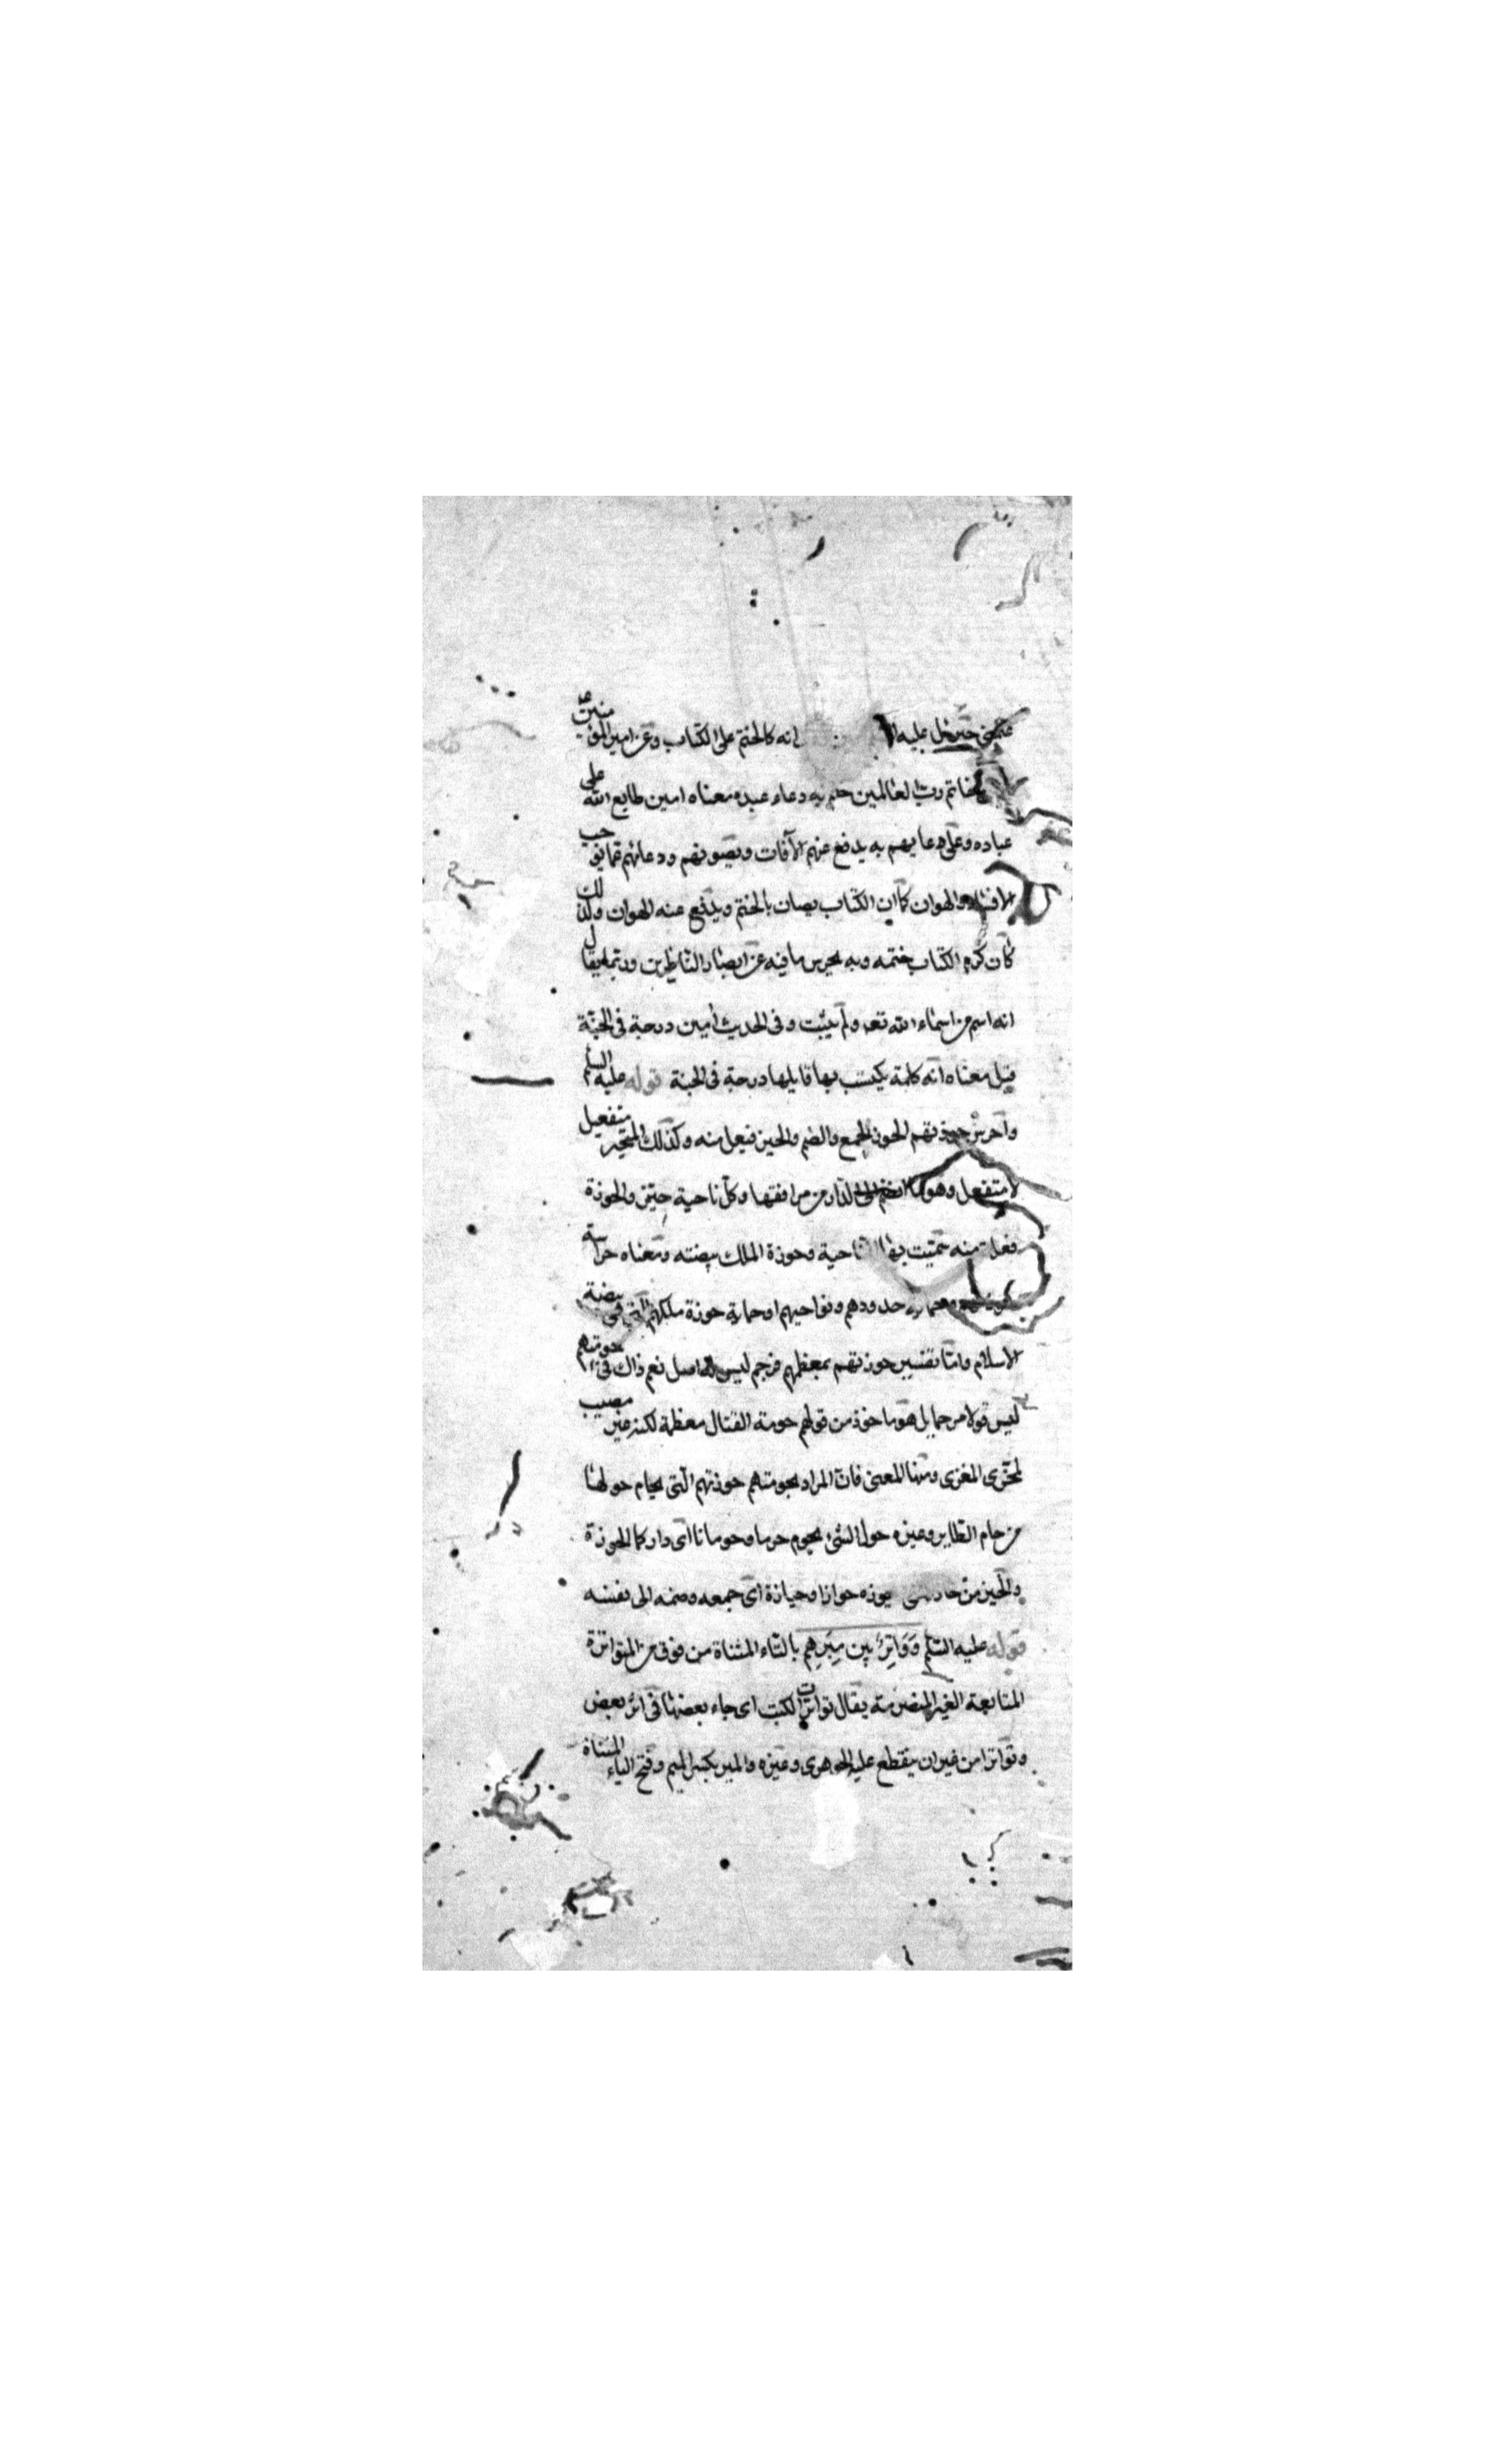 علمني جبرئيل عليه انه كالختم على الكتاب وعن اميرالمؤمنين ع
خاتم رب العالمين ختم به دعاء عبده معناه امين طابع الله على
عباده وعلى دعايهم به يدفع عنهم الآفات ويصونهم ودعائهم عما يوجب
الافشاء والهوان كما ان الكتاب يصان بالختم ويدفع عنه الهوان ولذلك
كان كرم الكتاب ختمه وبه يحرس ما فيه عن ابصار الناظرين وربما يقال
انه اسم من اسماء الله تعه ولم يثبت وفى الحديث أمين درجة فى الجنة
قيل معناه انه كلمة يكتسب بها قايلها درجة فى الجنة قوله عليه السلم
واحرس حوذتهم الحوز الجمع والضم والحيز فيعل منه وكذلك المتحيز متفعيل
لا متفعل وهو ما انضم الى الدار من مرافقها وكل ناحية حيز والحوزة
فعلة منه سميت بها الناحية وحوزة الملك بيضته ومعناه حراسة
حدودهم ونواحيهم او حماية حوزة ملكهم التى هى بيضة
الاسلام واما تفسير حوذتهم بمعظمهم فرجم ليس له اصل نعم ذاك فى حومتهم
ليس قولا من جما بل هو ماخوذ من قولهم حومة القتال معظمة لكنه غير مصيب
لمحزى المغزى ومهنا المعنى فان المراد بحومتهم حوذتهم التى يحام حولها
من حام الطاير وغيره حول الشئ يحوم حوما وحومانا اى دار كما الحوزة
والحيز من حاز يحوزه حوازا وحيازة اى جمعه وضمه الى نفسه
قوله عليه السلم وَوَاتِرْ بين مِيَرِهِم بالتاء المثناة من فوق من المتواترة
المتابعة الغير المنصرمة يقال تواترت الكتب اى جاء بعضها فى اثر بعض
وتواترا من غير ان ينقطع عليه الجوهرى وغيره والمير بكسر الميم وفتح الياء المثناة